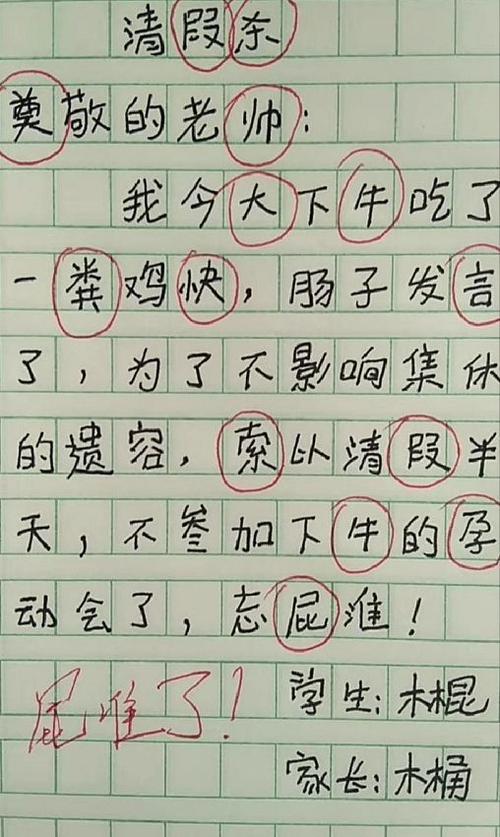 清段杂
奠敬的老帅：
我今大下牛吃了
一粪鸡快，肠子发言
了，为了不影响集休
的遗容，索以清段半
天，不叁加下牛的孕
动会了，忘屁淮！
屁准了！
学生：木棍
家长：木桶